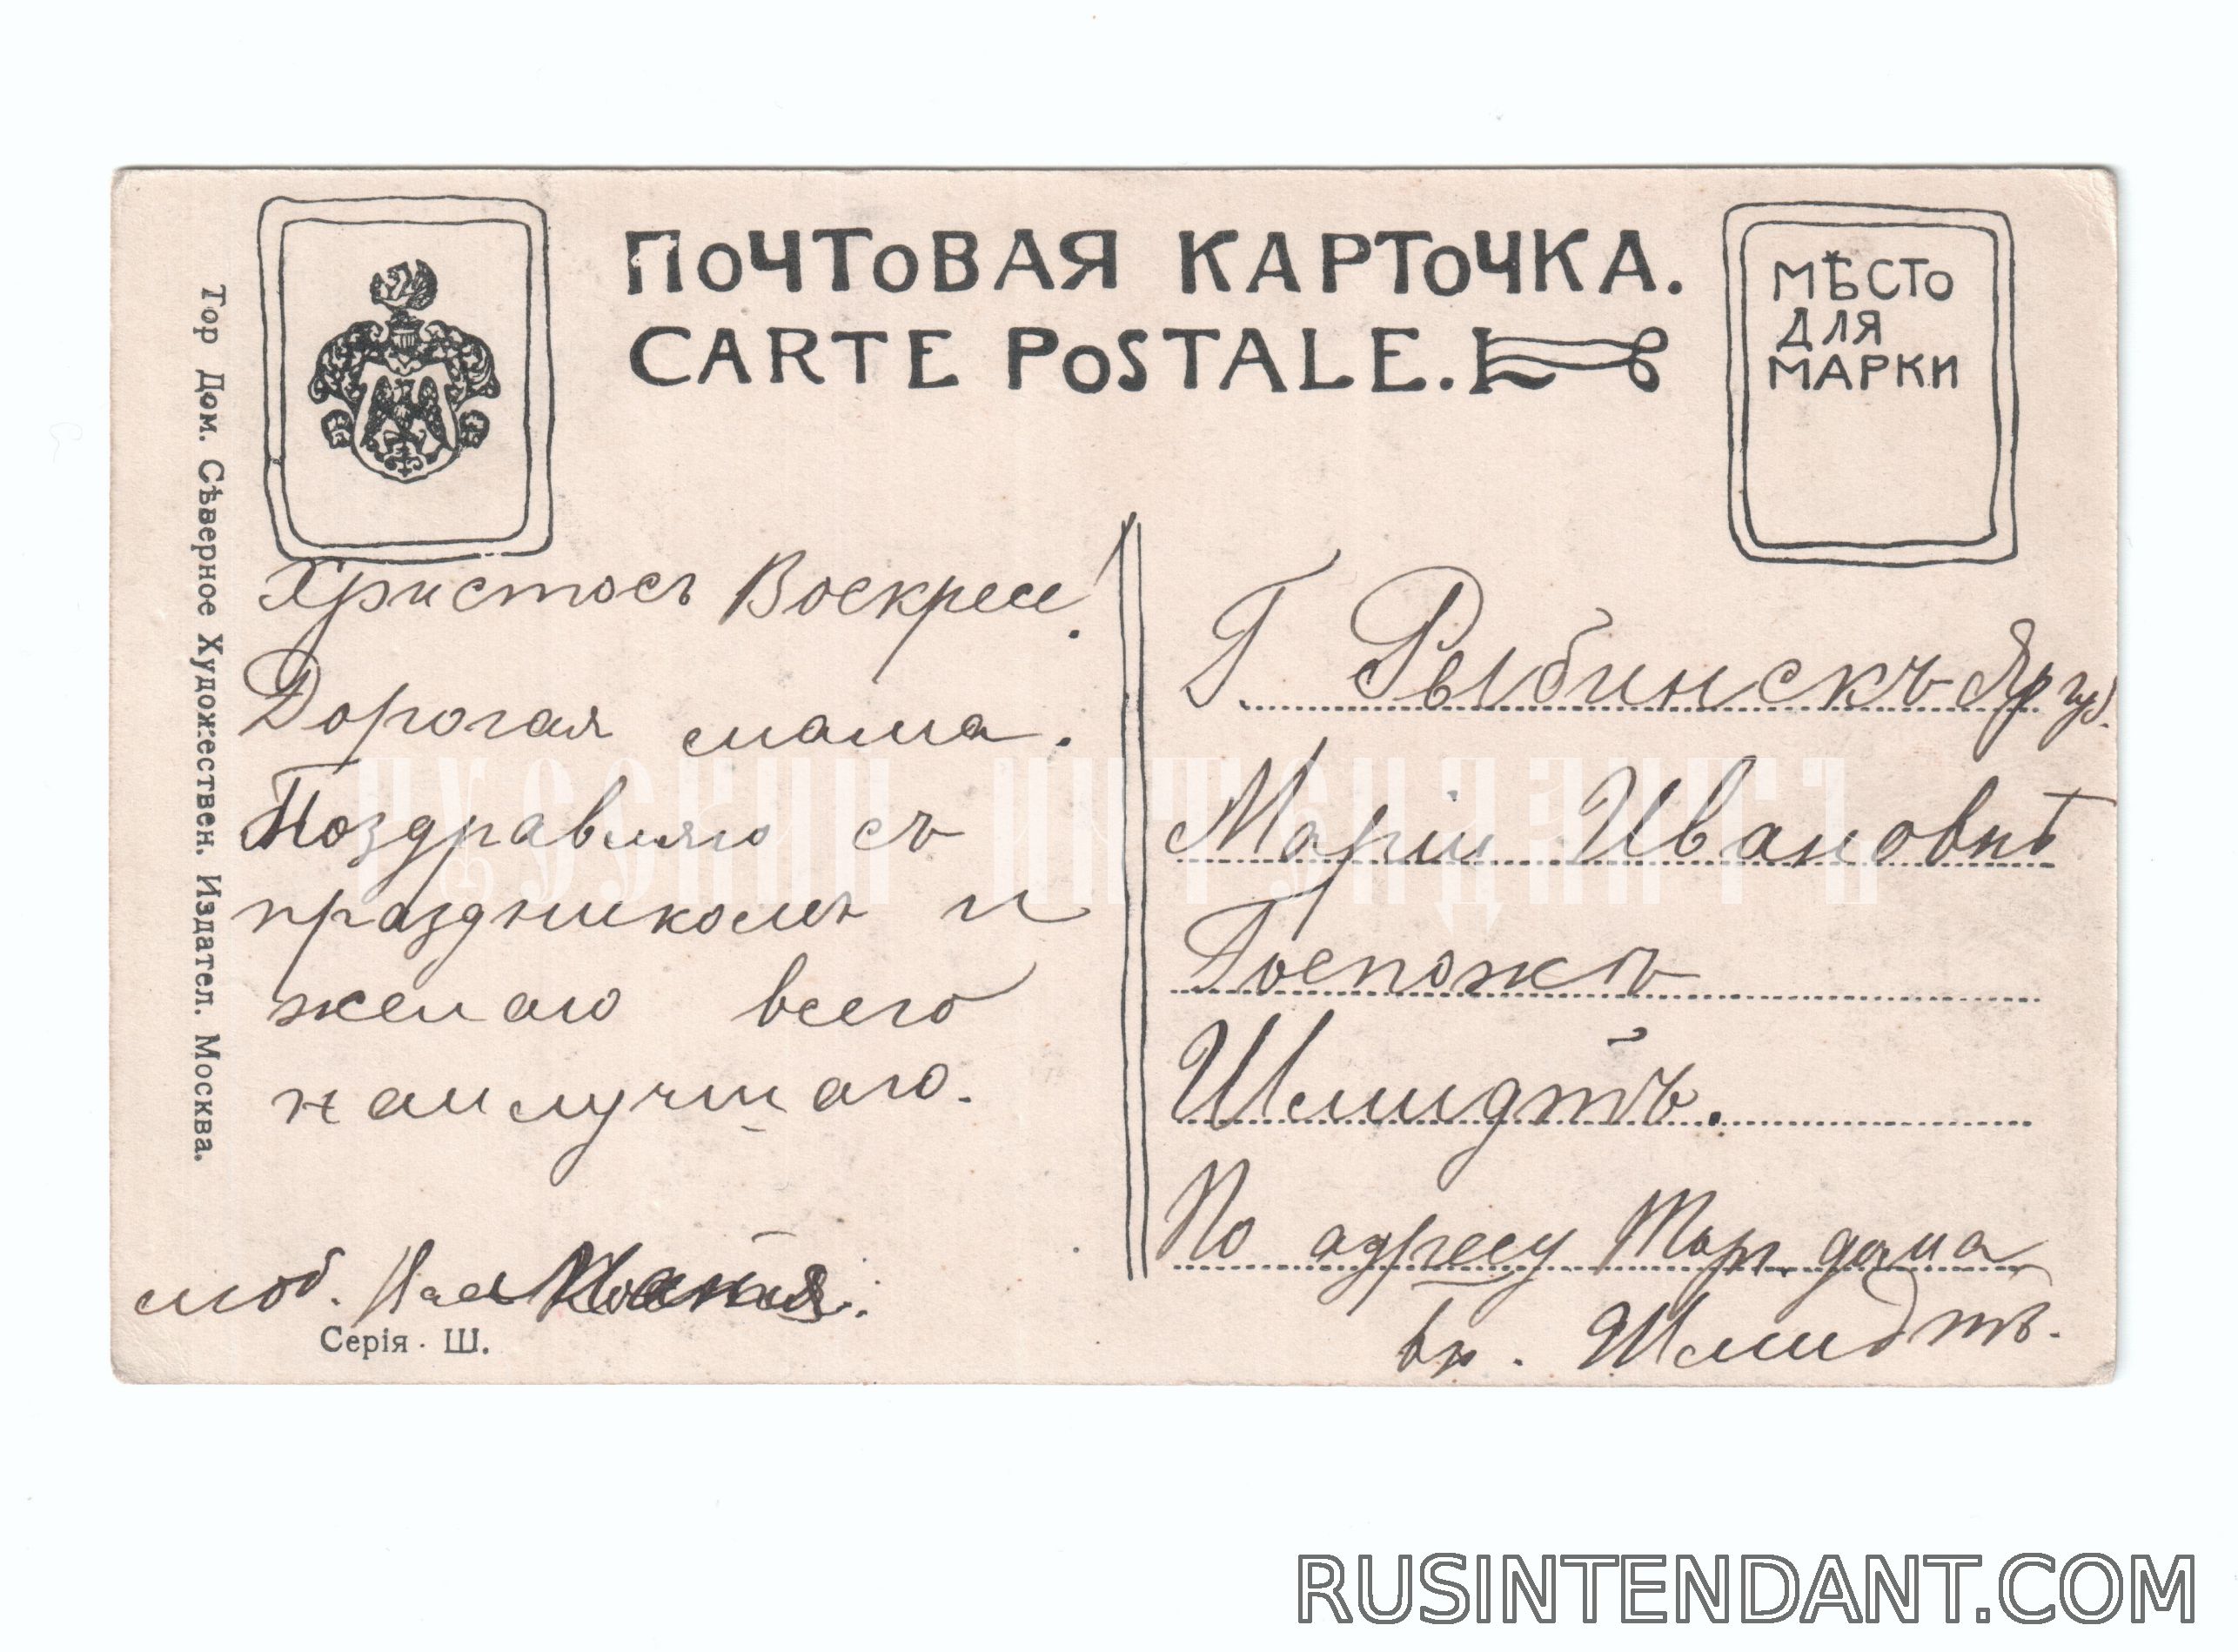 ПОЧТОВАЯ КАРТОЧКА.
CARTE POSTALE.
МѢСТО
ДЛЯ
МАРКИ
Тор Дом. Сѣверное Художествен. Издател. Москва.
Христосъ Воскресе!
Дорогая мама.
Поздравляю съ
праздникомъ и
желаю всего
наилучшаго.
люб.
Серія · Ш.
Г. Рыбинскъ Яр губ.
Маріи Ивановнѣ
Госпожѣ
Шмидтъ.
По адресу Торг. дома
бр. Шмидтъ.
РУССКИЙ ИНТЕНДАНТЪ
RUSINTENDANT.COM